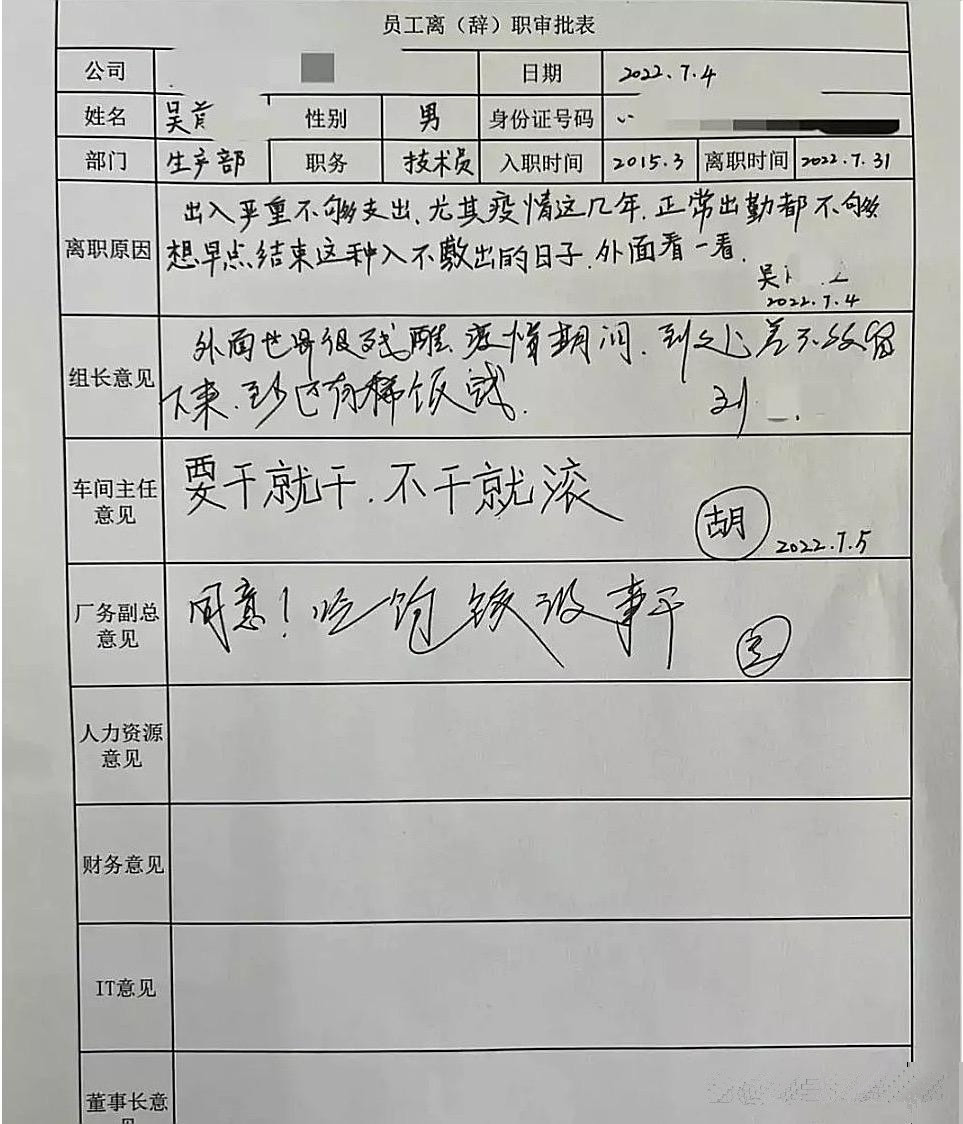 员工离（辞）职审批表
公司 日期 2022.7.4
姓名 吴 性别 男 身份证号码
部门 生产部 职务 技术员 入职时间 2015.3 离职时间 2022.7.31
离职原因
出入严重不够支出，尤其疫情这几年，正常出勤都不够
想早点结束这种入不敷出的日子，外面看一看．
吴
2022.7.4
组长意见
外面世界很残酷，疫情期间，到处差不多留
下来，至少还有稀饭喝．
刘
车间主任
意见
要干就干，不干就滚
胡
2022.7.5
厂务副总
意见
同意！吃饱饭没事干
人力资源
意见
财务意见
IT意见
董事长意